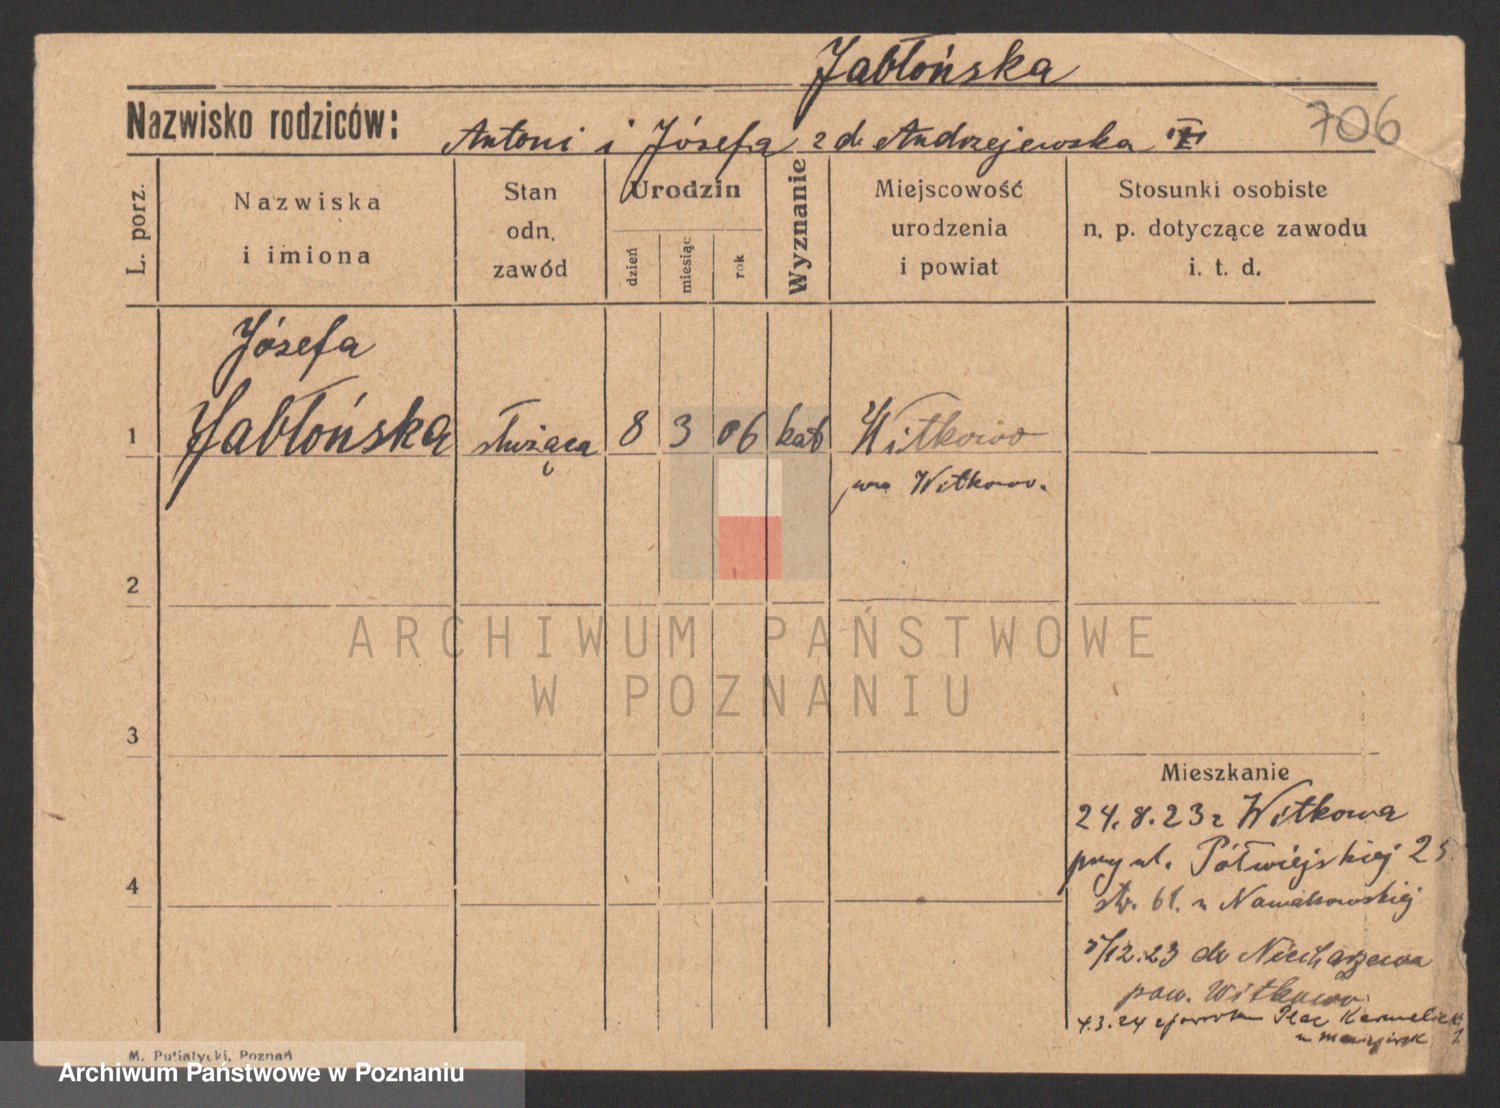 Jabłońska
Nazwisko rodziców: Antoni i Józefa z d. Andrzejewska
706
L. porz.
Nazwiska
i imiona
Stan
odn.
zawód
Urodzin
dzień
miesiąc
rok
Wyznanie
Miejscowość
urodzenia
i powiat
Stosunki osobiste
n. p. dotyczące zawodu
i. t. d.
Józefa
1 Jabłońska służąca 8 3 06 kat Witkowo
Witkowo.
2
3
4
Mieszkanie
24.8.23 z Witkowa
przy ul. Półwiejskiej 25
str. 61. u
5/12.23 do Niechanowa
pow. Witkowo
4.3.24 Plac
M. Putiatycki, Poznań
ARCHIWUM PAŃSTWOWE
W POZNANIU
Archiwum Państwowe w Poznaniu